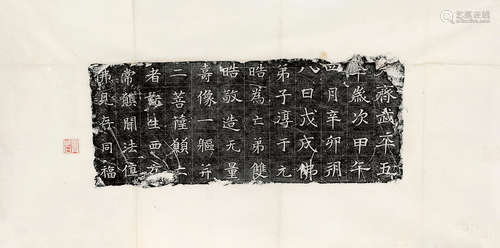 大齊武平五
年歲次甲午
四月辛卯朔
八日戊戌佛
弟子淳于元
皓為亡弟雙
皓敬造无量
壽像一軀并
二菩薩願亡
者託生西方
常饍聞法值
佛見存同福